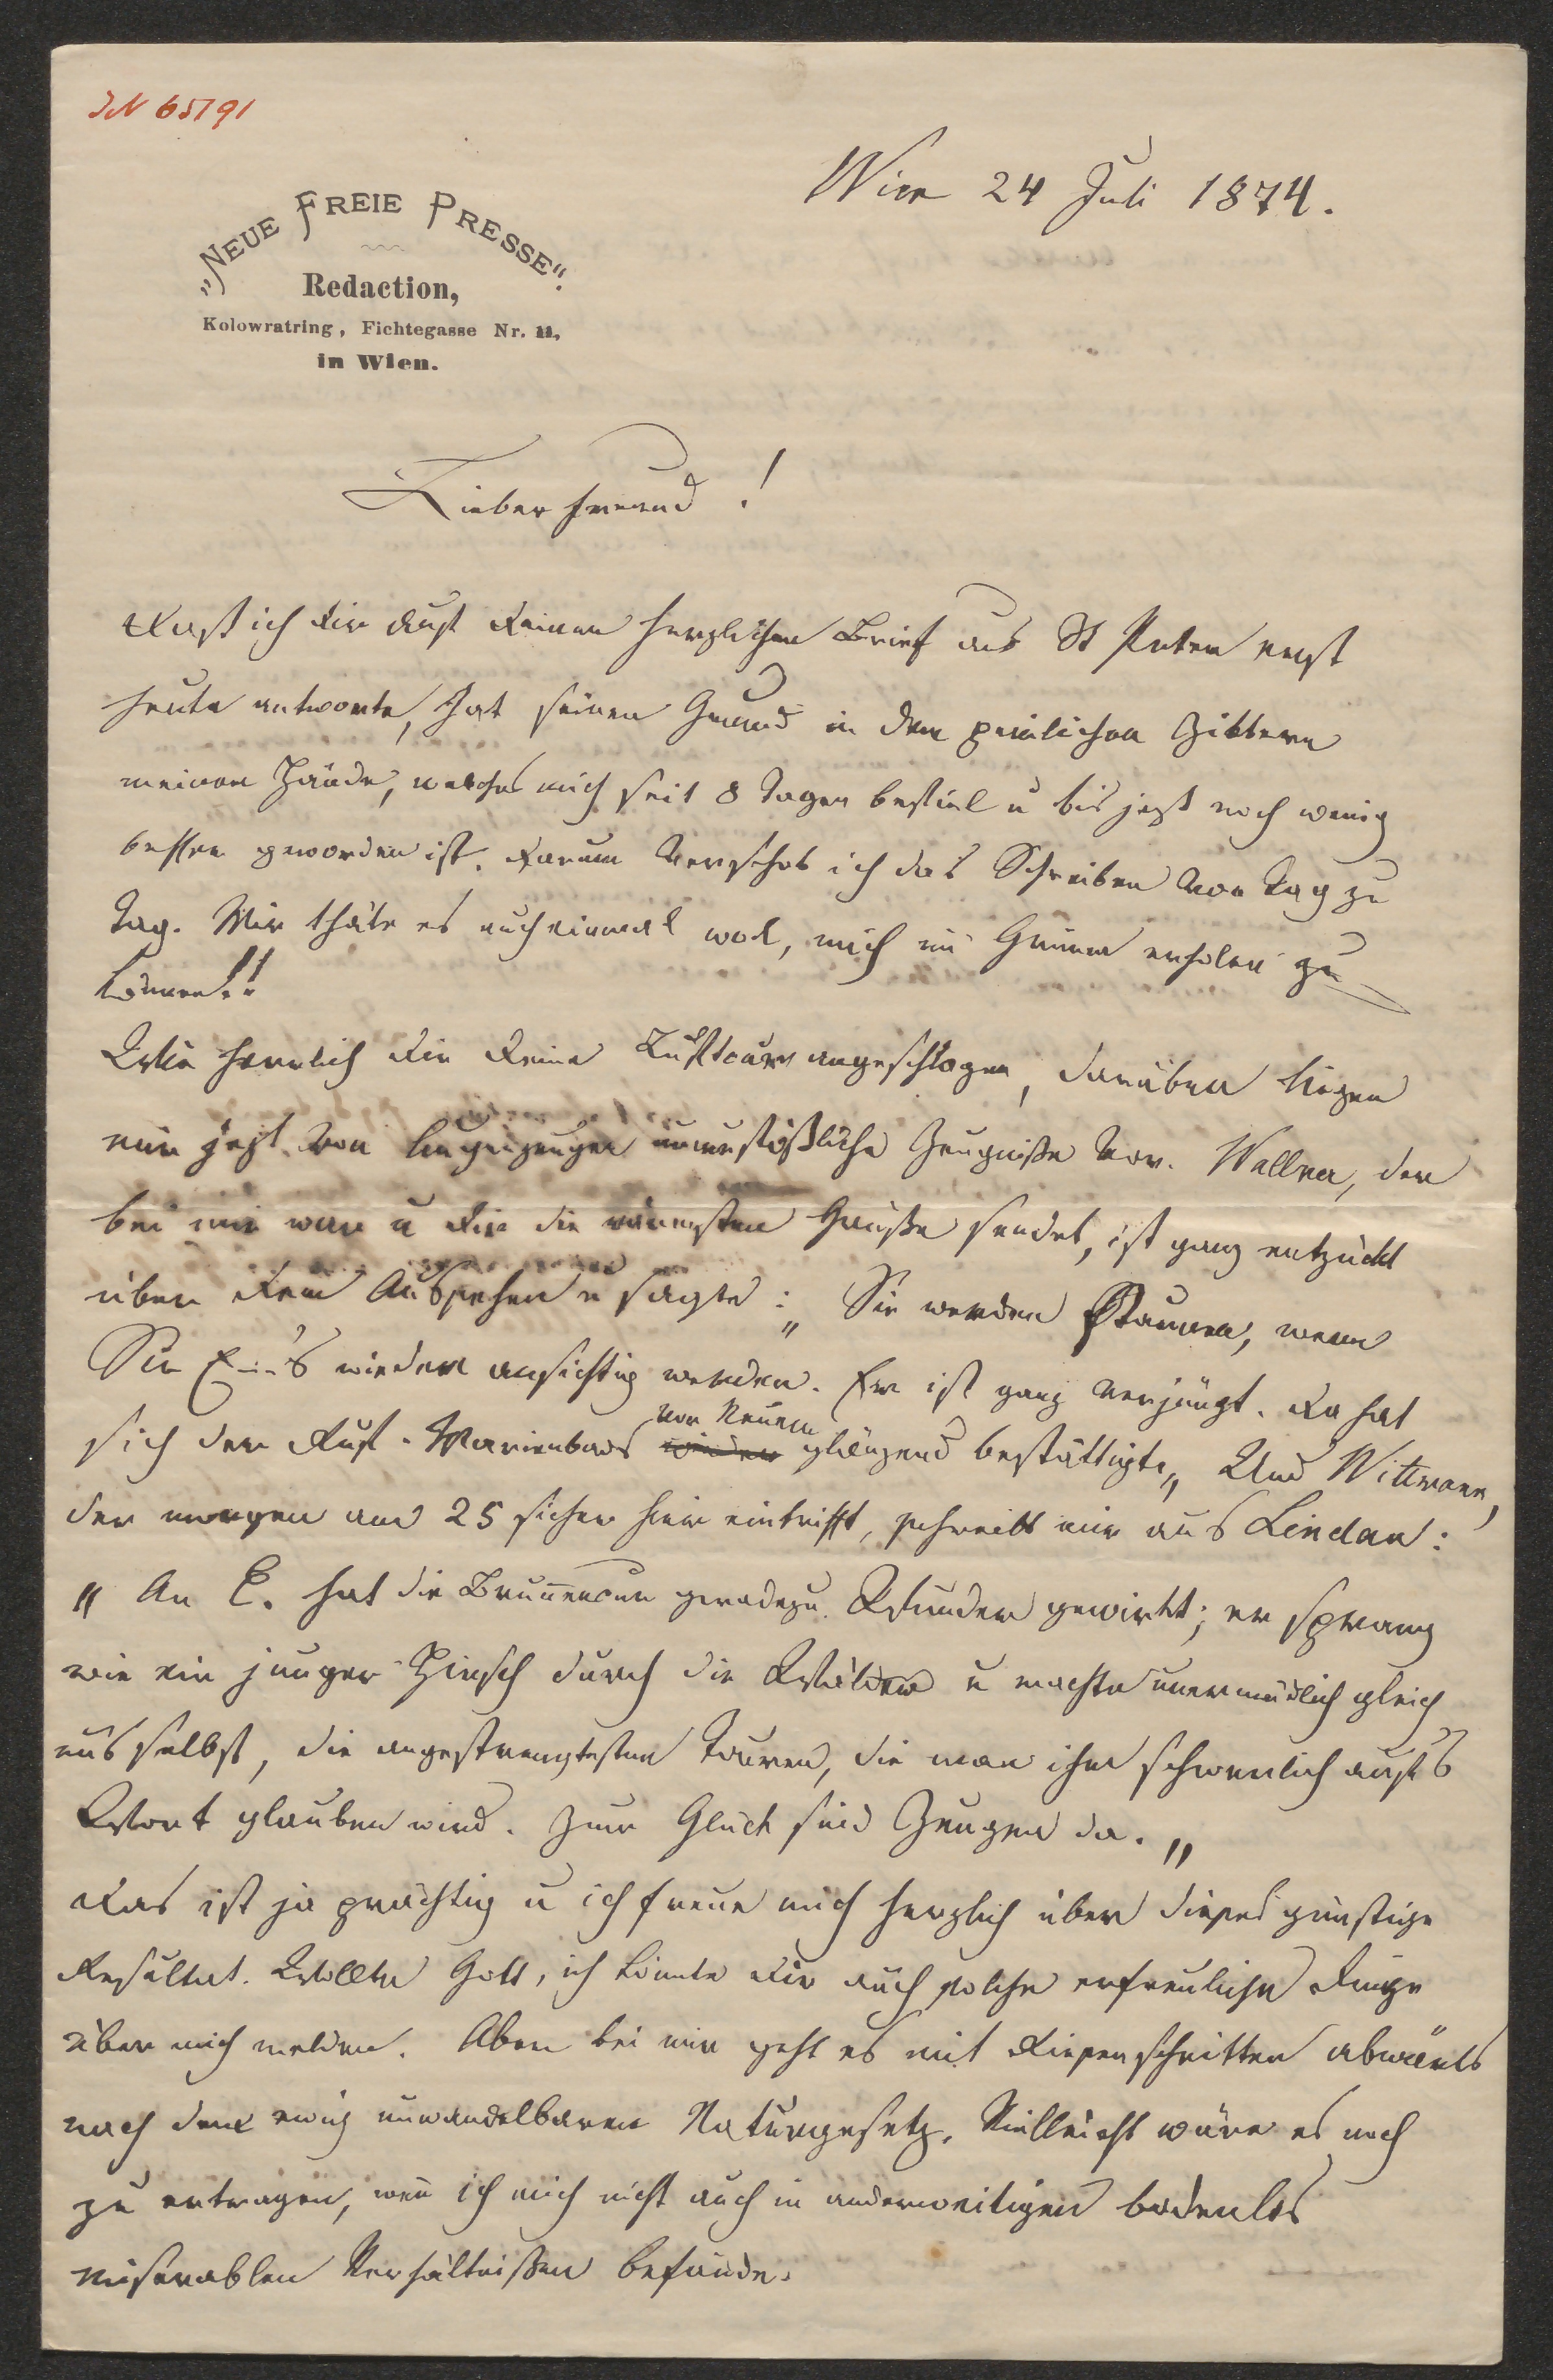 IN 65191
Wien 24 Juli 1874.
„NEUE FREIE PRESSE“.
Redaction,
Kolowratring, Fichtegasse Nr. 11,
in Wien.
Lieber Freund!
Daß ich Dir auf Deinen herzlichen Brief aus St Peter erst
heute antworte, hat seinen Grund in dem peinlichen Zittern
meiner Hände, welches mich seit 8 Tagen befiel u bis jetzt noch wenig
besser geworden ist. Darum verschob ich das Schreiben von Tag zu
Tag. Mir thäte es auch einmal wol, mich im Grünen erholen zu
können!!
Wie herrlich Dir Deine Luftcur angeschlagen, darüber liegen
mir jetzt von Augenzeugen unumstößliche Zeugniße vor. Wallner, der
bei mir war u Dir die wärmsten Grüße sendet, ist ganz entzückt
über Dein Aussehen u sagte: „Sie werden staunen, wenn
Sie E...s wieder ansichtig werden. Er ist ganz verjüngt. Da hat
sich der Ruf Marienbads wieder von Neuem glänzend bestättigt„ Und Wittmann,
der morgen am 25 sicher hier eintrifft, schreibt mir aus Lindau:
„An E. hat die Brunnencur geradezu Wunder gewirkt; er sprang
wie ein junger Hirsch durch die Wälder u machte unermüdlich gleich
uns selbst, die angestrengtesten Touren, die man ihm schwerlich auf's
Wort glauben wird. Zum Glück sind Zeugen da.„
Das ist ja prächtig u ich freue mich herzlich über dieses günstige
Resultat. Wollte Gott, ich könnte Dir auch solche erfreuliche Dinge
über mich melden. Aber bei mir geht es mit Riesenschritten abwärts
nach dem ewig unwandelbaren Naturgesetz. Vielleicht wäre es noch
zu ertragen, wen̄ ich mich nicht auch in anderweitigen bodenlos
miserablen Verhältnißen befände.